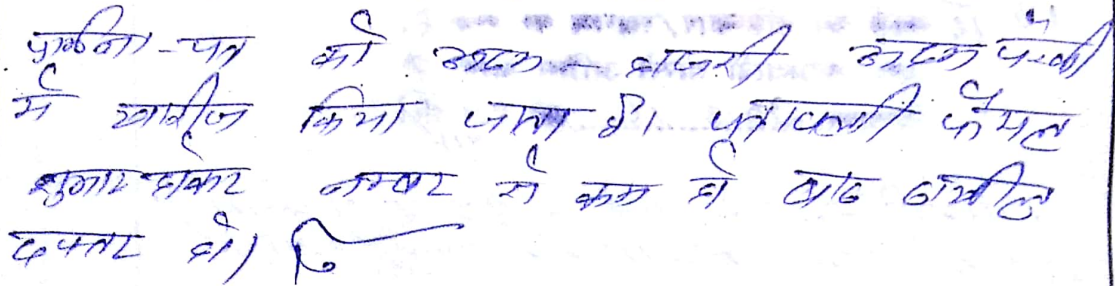 प्रार्थना-पत्र को अदम हाजरी अदम पैरवी
में खारीज किया जाता है। पत्रावली फैसल
शुमार होकर नम्बर से कम हो बाद दाखील
दफ्तर हो।